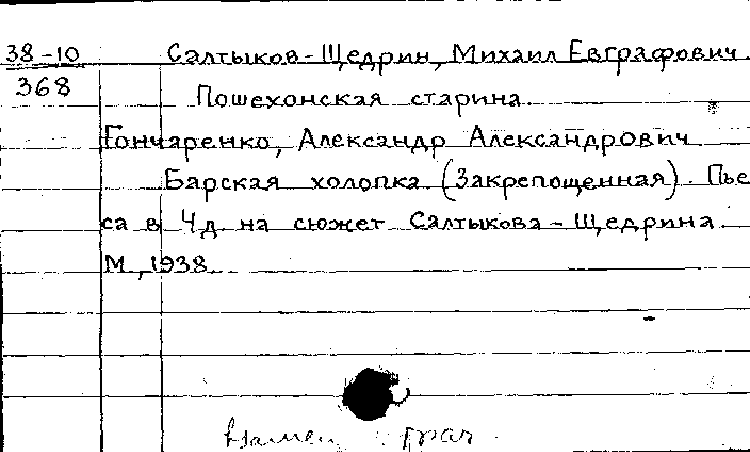 38-10 Салтыков-Щедрин, Михаил Евграфович.
368 Пошехонская старина.
Гончаренко, Александр Александрович
Барская холопка. (Закрепощенная). Пье
са в 4 д. на сюжет Салтыкова-Щедрина.
М., 1938.
взамен